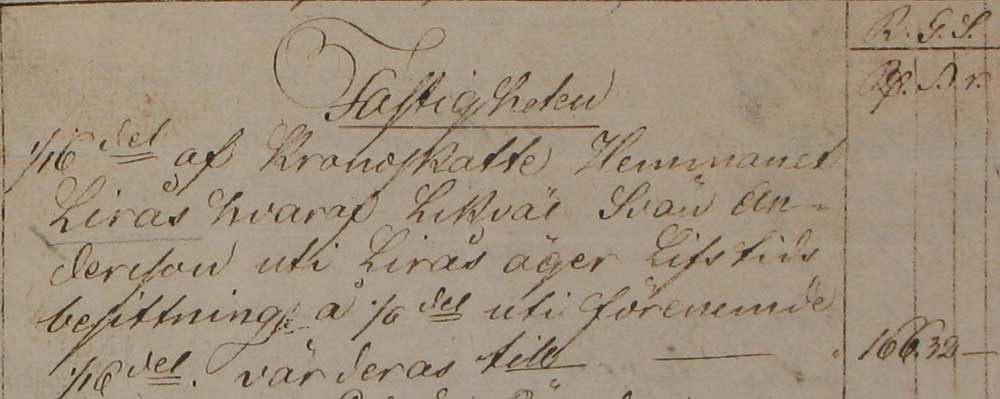 R. G. S.
Fastigheten
Rd. S. r.
1/16 del af Kronoskatte Hemmanet
Lirås hvaraf Likväl Svän An-
derson uti Lirås äger Lifstids
besittning å 1/6 del uti förenemde
1/16 del. värderas till — 166.32 —